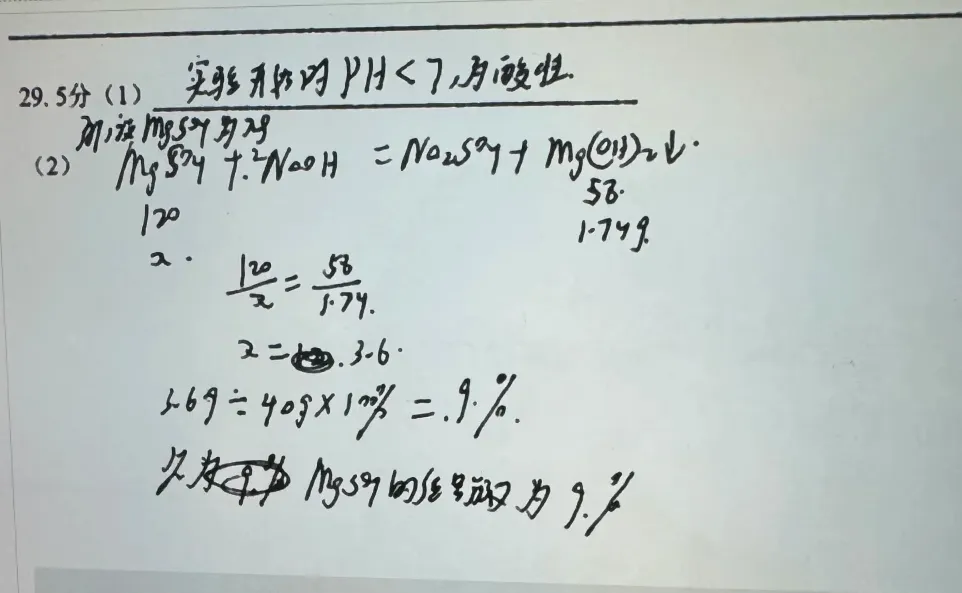 29. 5分 (1) 实验开始时PH<7,为酸性.
解,设MgSO4为xg
(2) MgSO4 + 2NaOH = Na2SO4 + Mg(OH)2↓.
120 58.
x. 1.74g.
120/x = 58/1.74.
x = 3.6.
3.6g ÷ 40g × 100% = 9.%.
MgSO4的 为 9.%